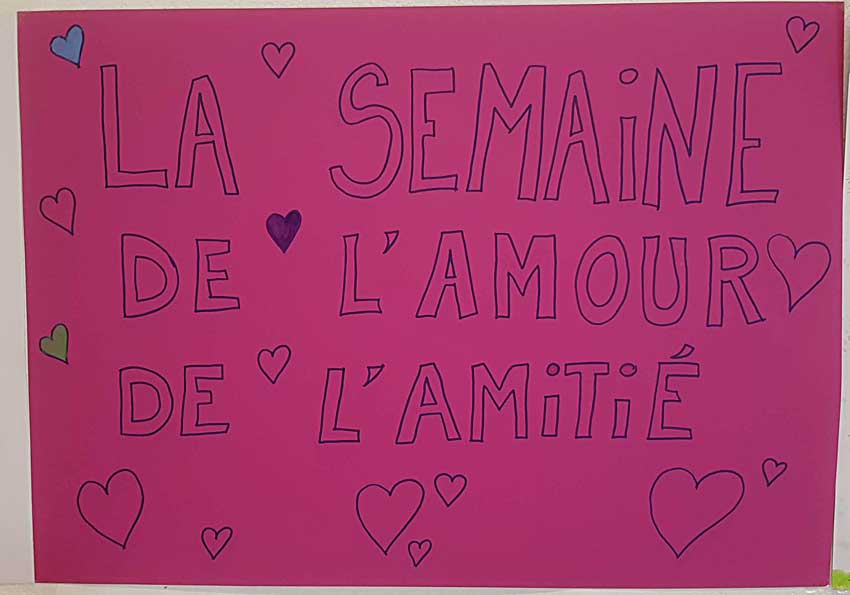 LA SEMAiNE
DE L'AMOUR
DE L'AMiTiÉ